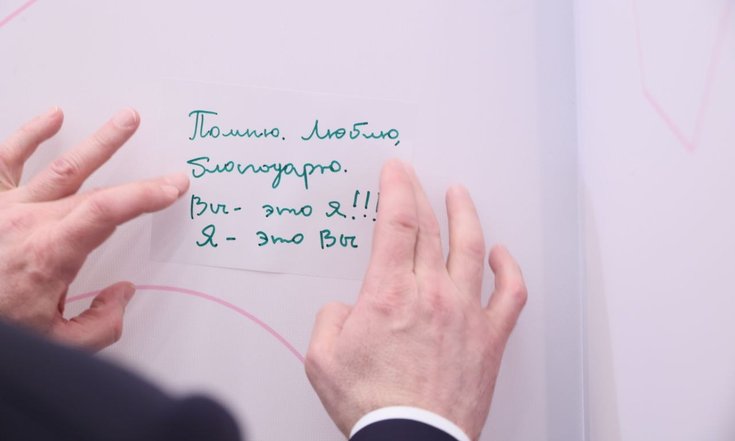 Помню. Люблю,
благодарю.
Вы - это я!!!
Я - это Вы